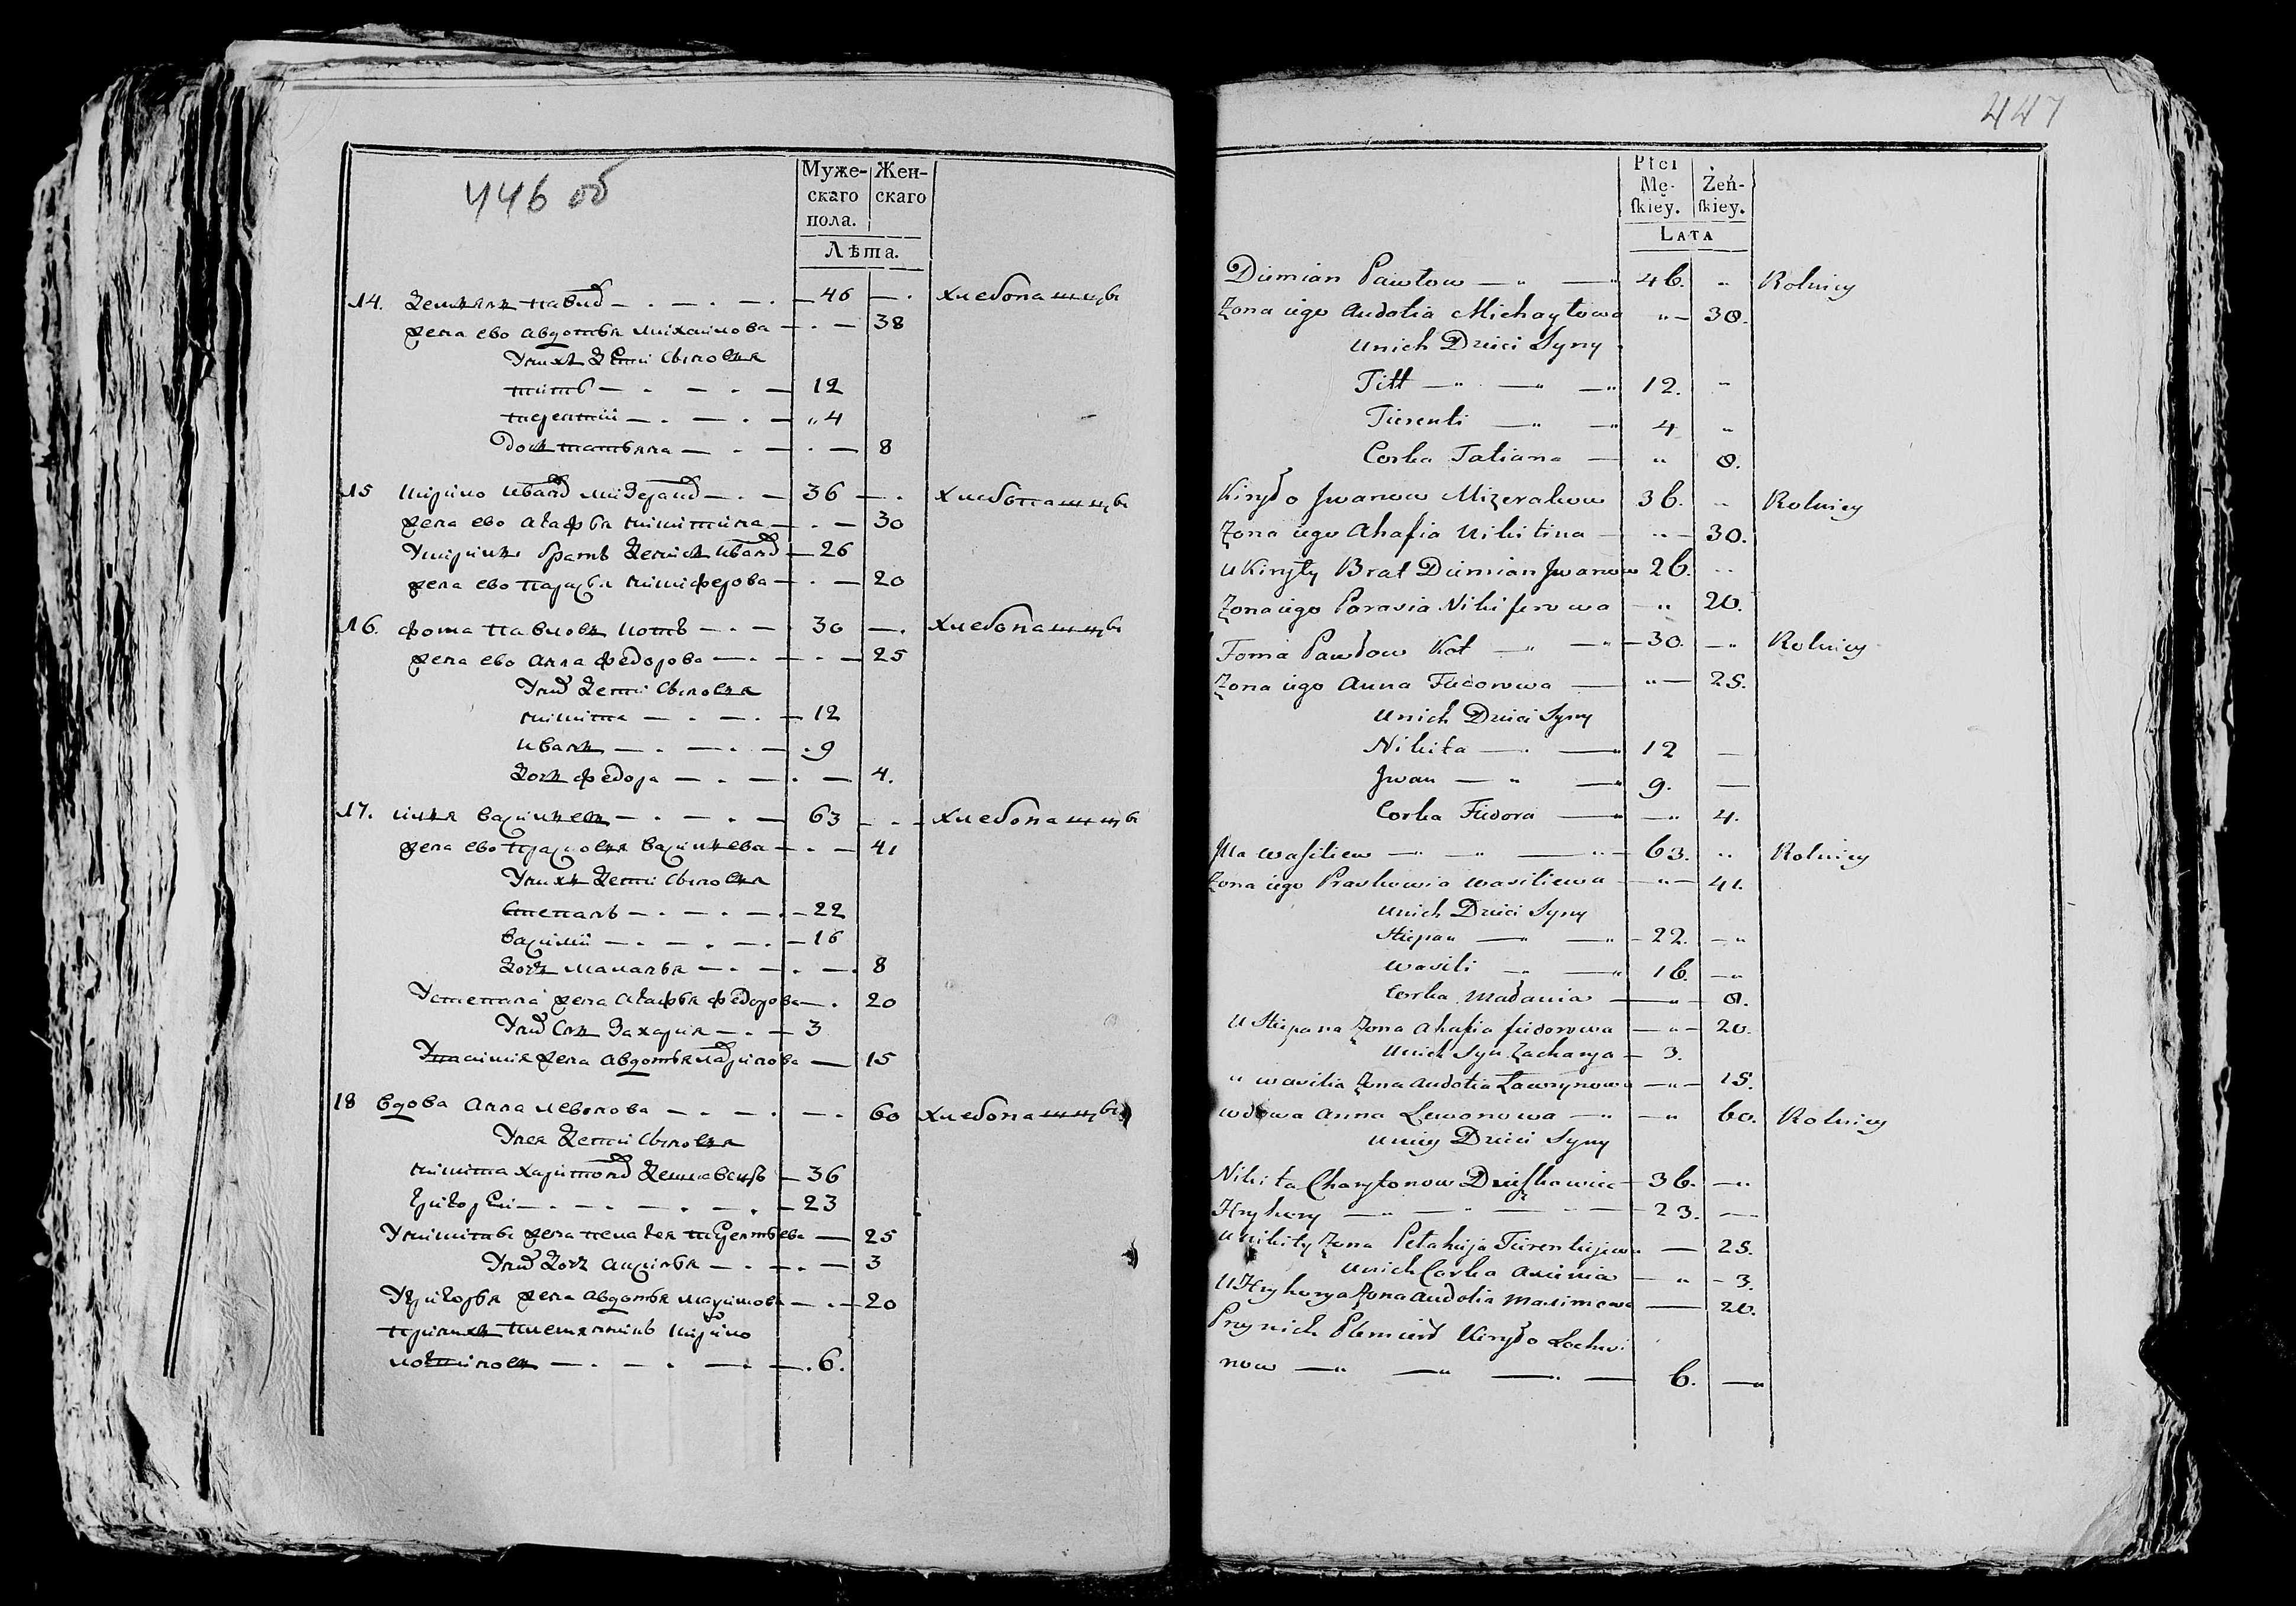 446 об
Муже-
скаго
пола.
Жен-
скаго
Лѣта.
14. Демянъ павлов 46 хлебопашцы
жена ево авдотья михаилова 38
У них дети сыновья
титъ 12
терентий 4
дочь татьяна 8
15 кирило иванов мизераков 36 хлебопашцы
жена ево агафья никитина 30
У кирилы братъ Демян иванов 26
жена ево парасья никифорова 20
16. фома павловъ котъ 30 хлебопашцы
жена ево анна федорова 25
У них дети сыновья
никита 12
иванъ 9
дочь федора 4.
17. илья васильевъ 63 хлебопашцы
жена ево прасковья васильева 41
У нихъ дети сыновья
степанъ 22
василий 16
дочь маланья 8
У степана жена агафья федорова 20
У них сынъ захария 3
У василия жена авдотья лавринова 15
18 вдова анна левонова 60 хлебопашцы
У нея дети сыновья
никита харитонов 36
григорей 23
У никиты жена пелагея терентьева 25
У них дочь аксинья 3
У григорья жена авдотья максимова 20
при них племянникъ кирило
логвиновъ 6.
447
Płci
Mę-
ſkiey.
Żeń-
ſkiey.
LATA
Diemian Pawłow 46. Rolnicy
Żona iego Audotia Michayłowa 38.
U nich Dzieci Syny
Titt 12.
Tierenti 4
Corka Tatiana 8.
Kiryło Jwanow Mizerakow 36. Rolnicy
Żona iego Ahafia Nikitina 30.
U Kiryły Brat Diemian Jwanow 26.
Żona iego Parasia Nikiferowa 20.
Foma Pawłow Kot 30. Rolnicy
Żona iego Anna Fiedorowa 25.
U nich Dzieci Syny
Nikita 12
Jwan 9.
Corka Fiedora 4.
Jlia Wasiliew 63. Rolnicy
Żona iego Praskowia Wasiliewa 41.
U nich Dzieci Syny
Stiepan 22.
Wasili 16.
Corka Małania 8.
U Stiepana Żona Ahafia Fiedorowa 20.
U nich Syn Zacharya 3.
U Wasilia Żona Audotia Ławrynowa 15.
Wdowa Anna Lewonowa 60. Rolnicy
U niey Dzieci Syny
Nikita Charytonow 36.
Hryhory 23.
U Nikity Żona Pełahija Tierentiejewa 25.
U nich Corka Axinia 3.
U Hryhorya Żona Audotia Maximowa 20.
Przy nich Plemien Kiryło Lochwi
now 6.